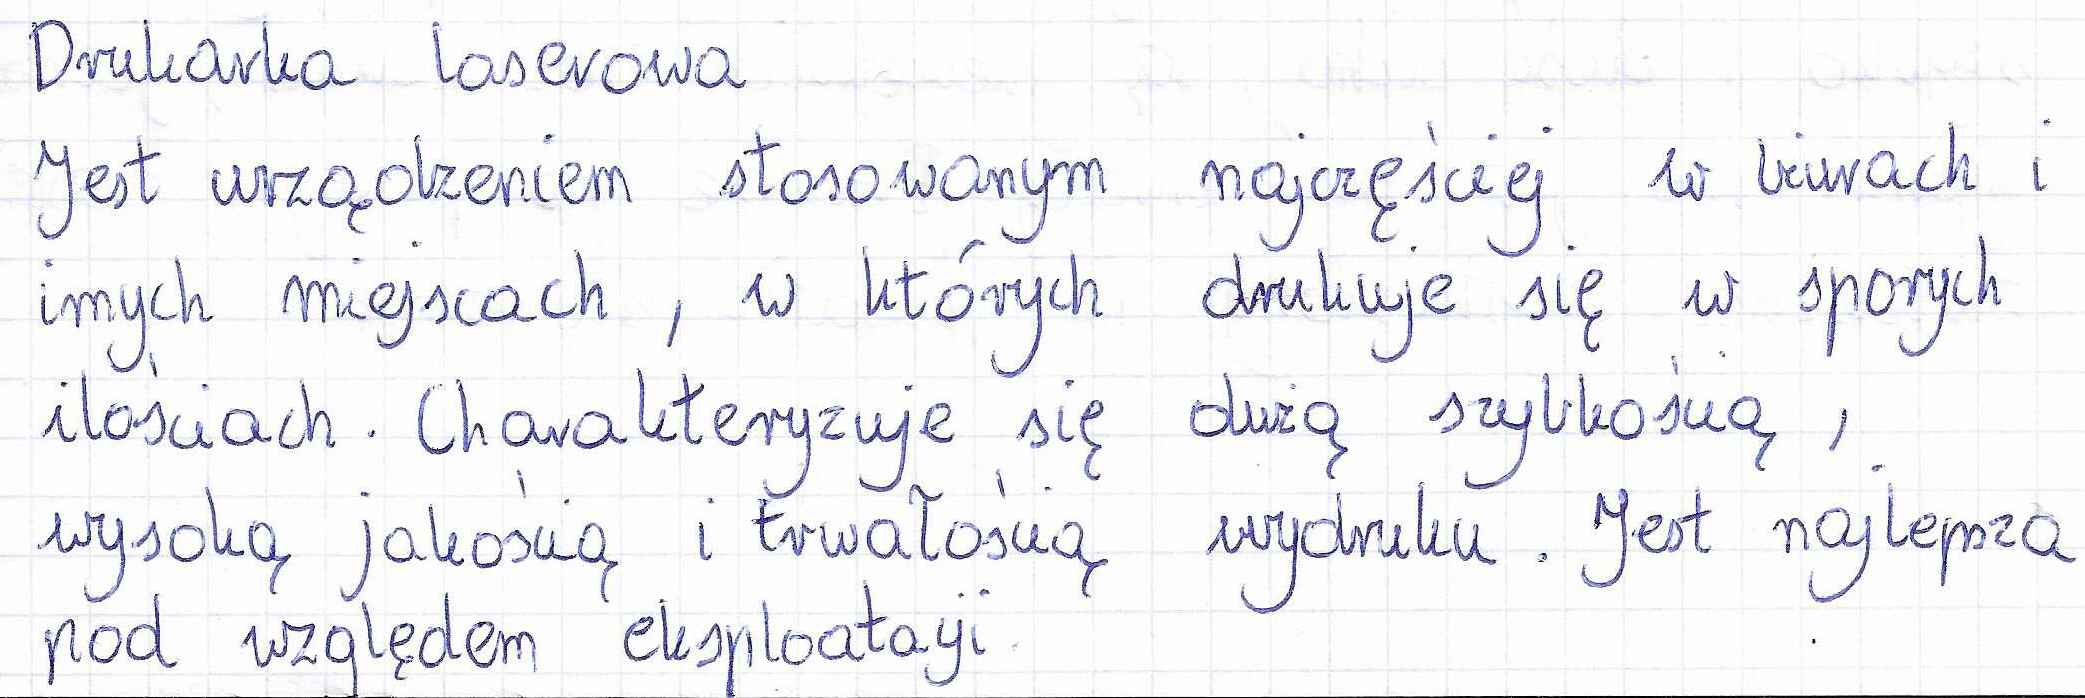 Drukarka laserowa
Jest urządzeniem stosowanym najczęściej w biurach i
innych miejscach, w których drukuje się w sporych
ilościach. Charakteryzuje się dużą szybkością,
wysoką jakością i trwałością wydruku. Jest najlepsza
pod względem eksploatacji.